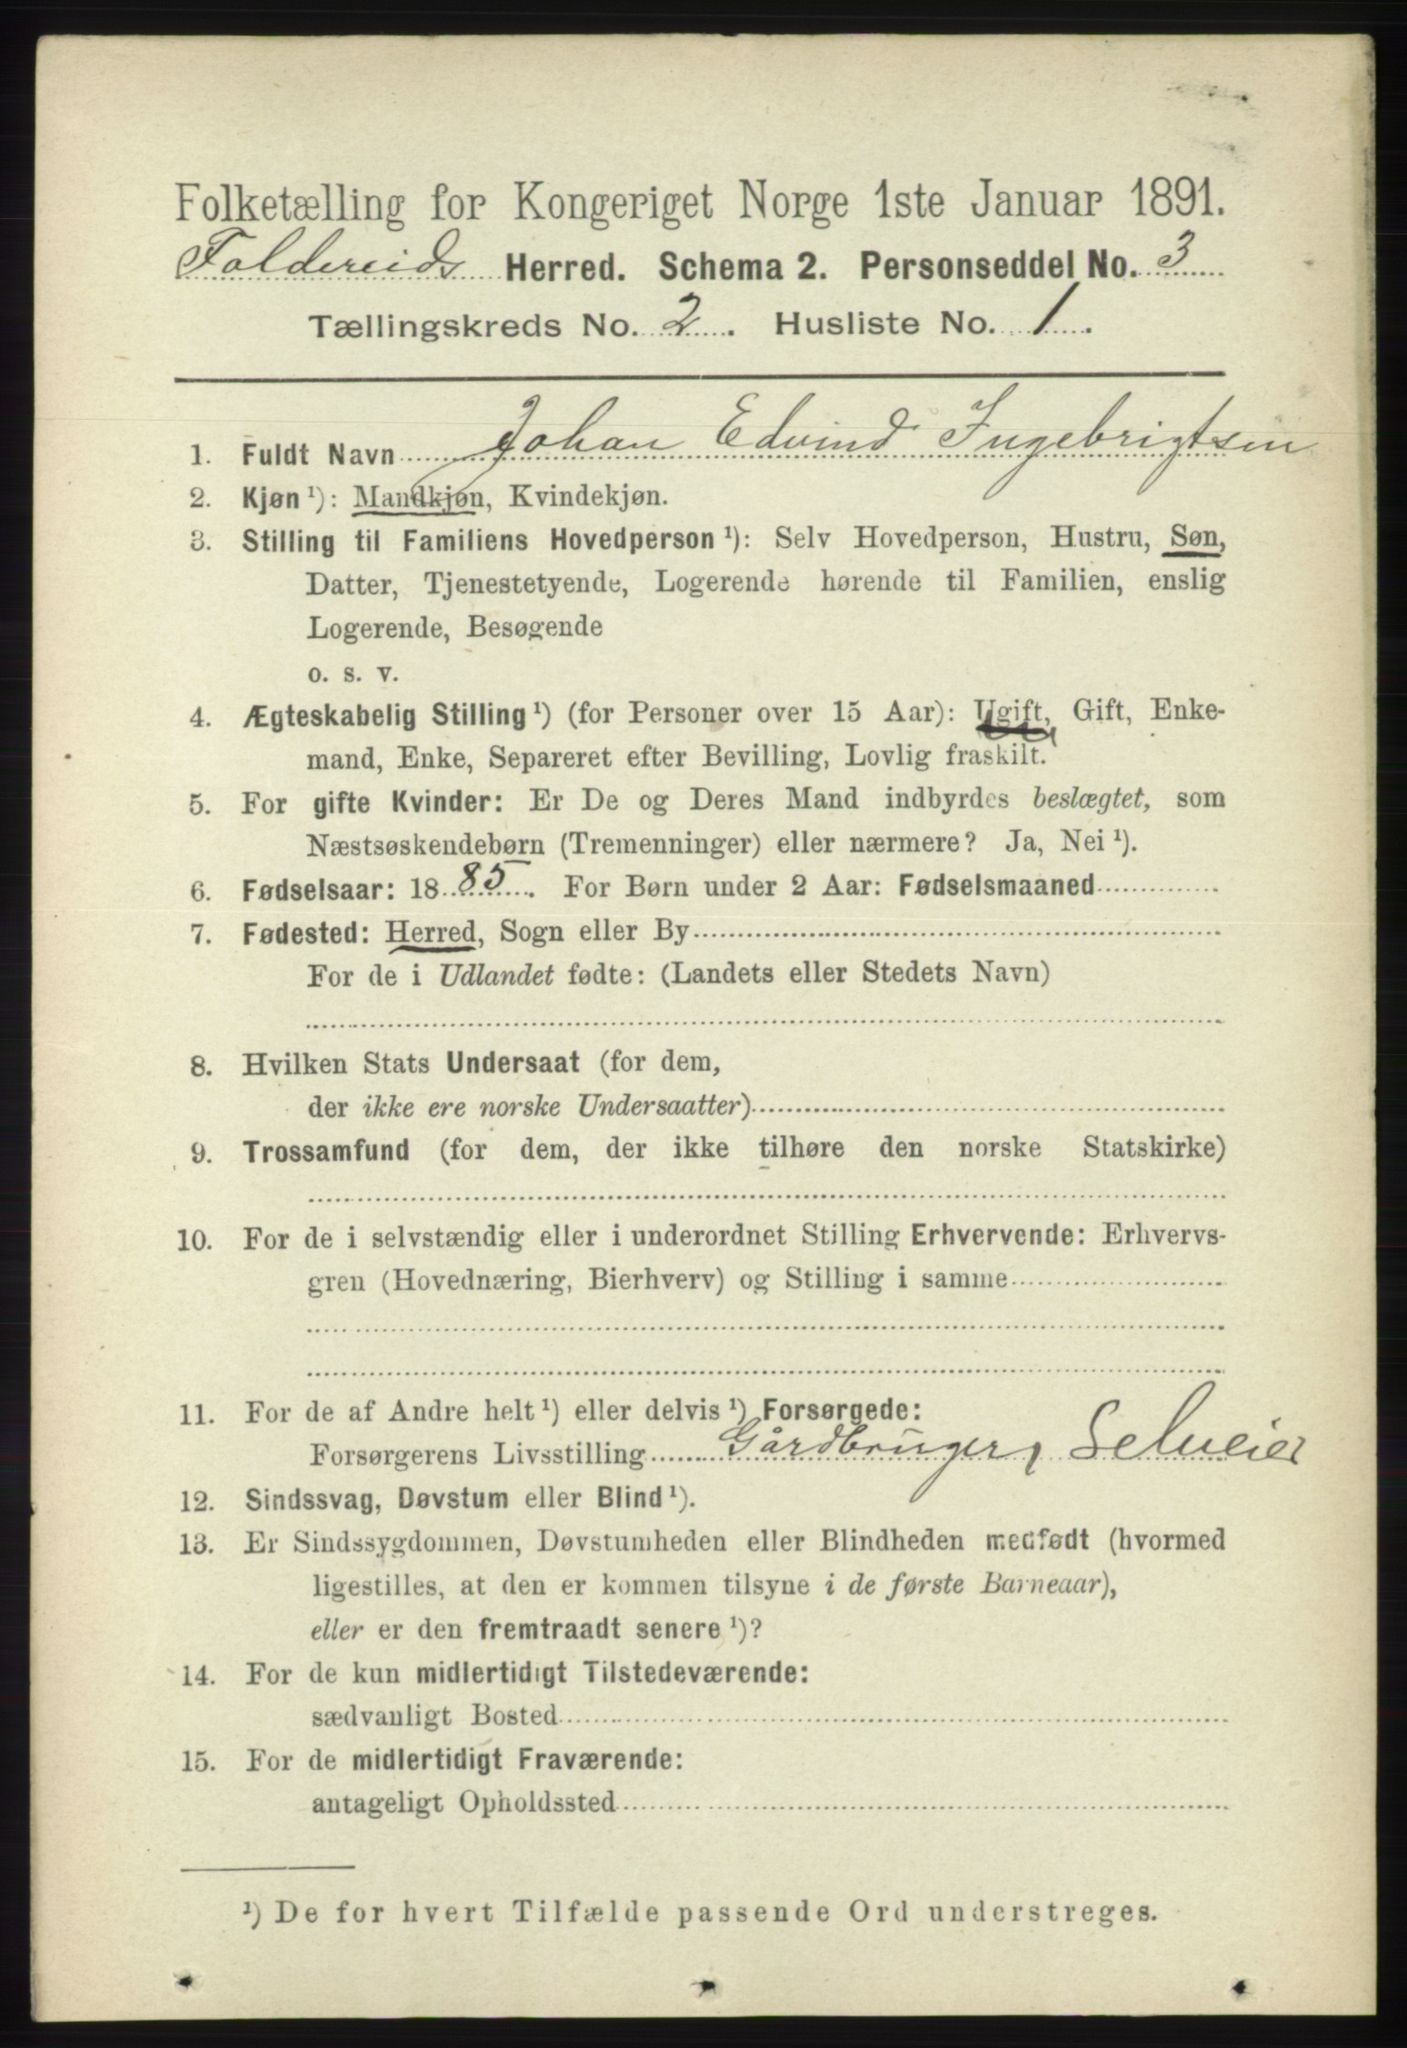 Folketælling for Kongeriget Norge 1ste Januar 1891.
Foldereids Herred. Schema 2. Personseddel No. 3
Tællingskreds No. 2. Husliste No. 1.
1. Fuldt Navn Johan Edvind Ingebrigtsen
2. Kjøn¹): Mandkjøn, Kvindekjøn.
3. Stilling til Familiens Hovedperson¹): Selv Hovedperson, Hustru, Søn,
Datter, Tjenestetyende, Logerende hørende til Familien, enslig
Logerende, Besøgende
o. s. v.
4. Ægteskabelig Stilling¹) (for Personer over 15 Aar): Ugift, Gift, Enke-
mand, Enke, Separeret efter Bevilling, Lovlig fraskilt.
5. For gifte Kvinder: Er De og Deres Mand indbyrdes beslægtet, som
Næstsøskendebørn (Tremenninger) eller nærmere? Ja, Nei¹).
6. Fødselsaar: 1885. For Børn under 2 Aar: Fødselsmaaned
7. Fødested: Herred, Sogn eller By
For de i Udlandet fødte: (Landets eller Stedets Navn)
8. Hvilken Stats Undersaat (for dem,
der ikke ere norske Undersaatter)
9. Trossamfund (for dem, der ikke tilhøre den norske Statskirke)
10. For de i selvstændig eller i underordnet Stilling Erhvervende: Erhvervs-
gren (Hovednæring, Bierhverv) og Stilling i samme
11. For de af Andre helt¹) eller delvis¹) Forsørgede:
Forsørgerens Livsstilling Gårdbruger, Selveier
12. Sindssvag, Døvstum eller Blind¹).
13. Er Sindssygdommen, Døvstumheden eller Blindheden medfødt (hvormed
ligestilles, at den er kommen tilsyne i de første Barneaar),
eller er den fremtraadt senere¹)?
14. For de kun midlertidigt Tilstedeværende:
sædvanligt Bosted
15. For de midlertidigt Fraværende:
antageligt Opholdssted
¹) De for hvert Tilfælde passende Ord understreges.